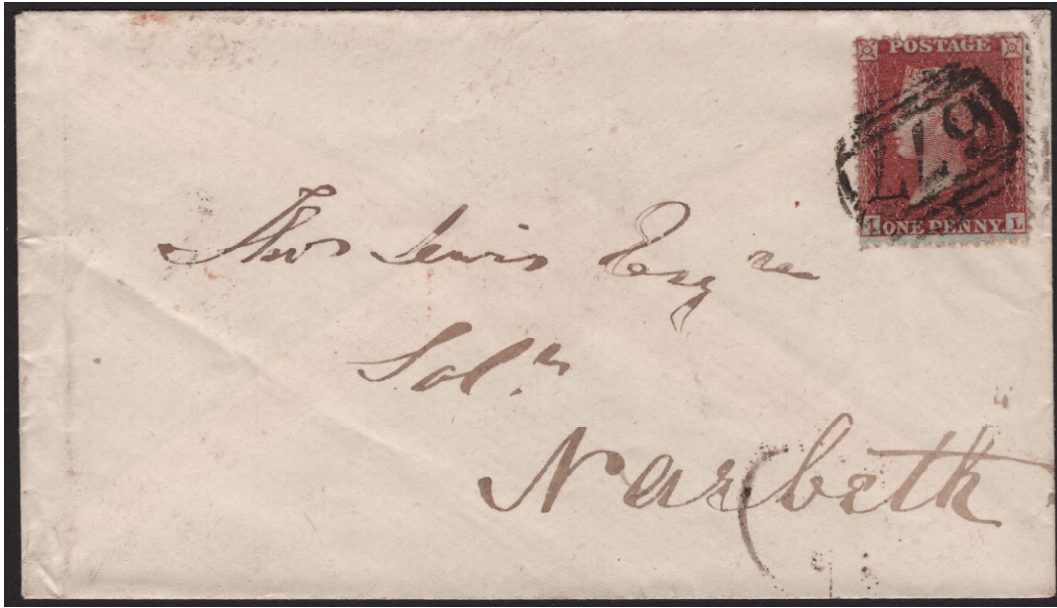 POSTAGE
677
ONE PENNY L
Thos Lewis Esqre
Solr.
Narbeth